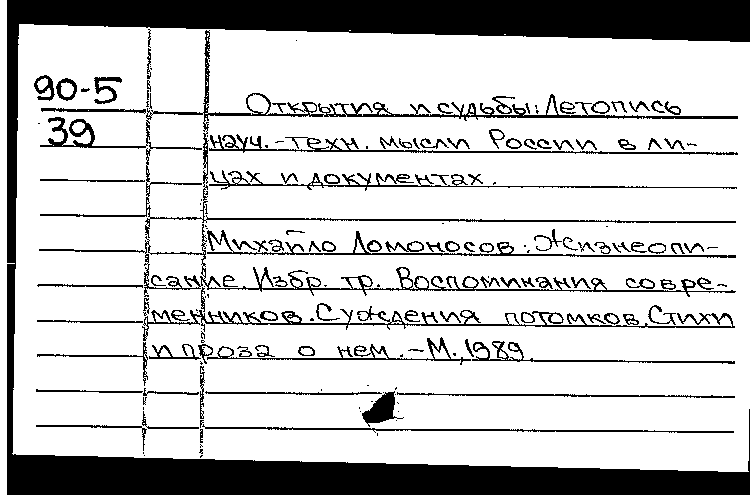 90-5
39
Открытия и судьбы: Летопись
науч.-техн. мысли России в ли-
цах и документах.
Михайло Ломоносов: Жизнеопи-
сание. Избр. тр. Воспоминания совре-
менников. Суждения потомков. Стихи
и проза о нем. - М., 1989.